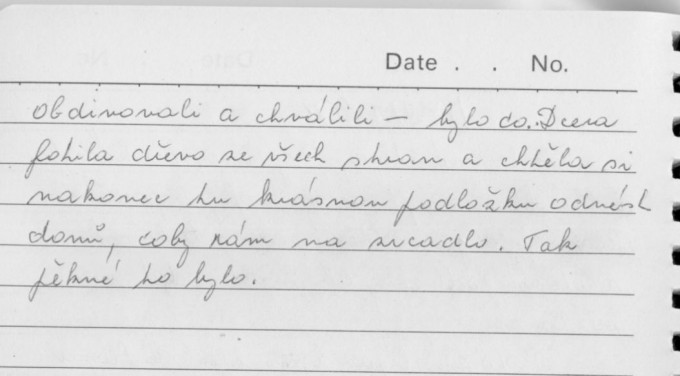 Date . . No.
obdivovali a chválili – bylo co. Dcera
fotila dřevo ze všech stran a chtěla si
nakonec tu krásnou podložku odnést
domů, coby rám na zrcadlo. Tak
pěkné to bylo.